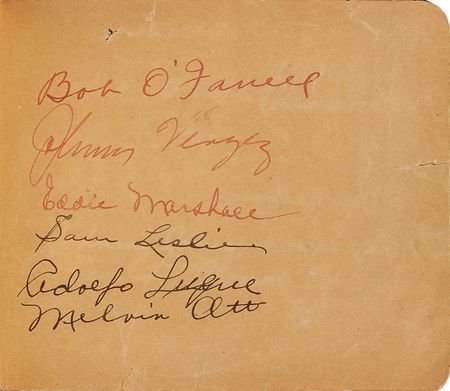 Bob O'Farrell
Johnny Vergez
Eddie Marshall
Sam Leslie
Adolfo Luque
Melvin Ott